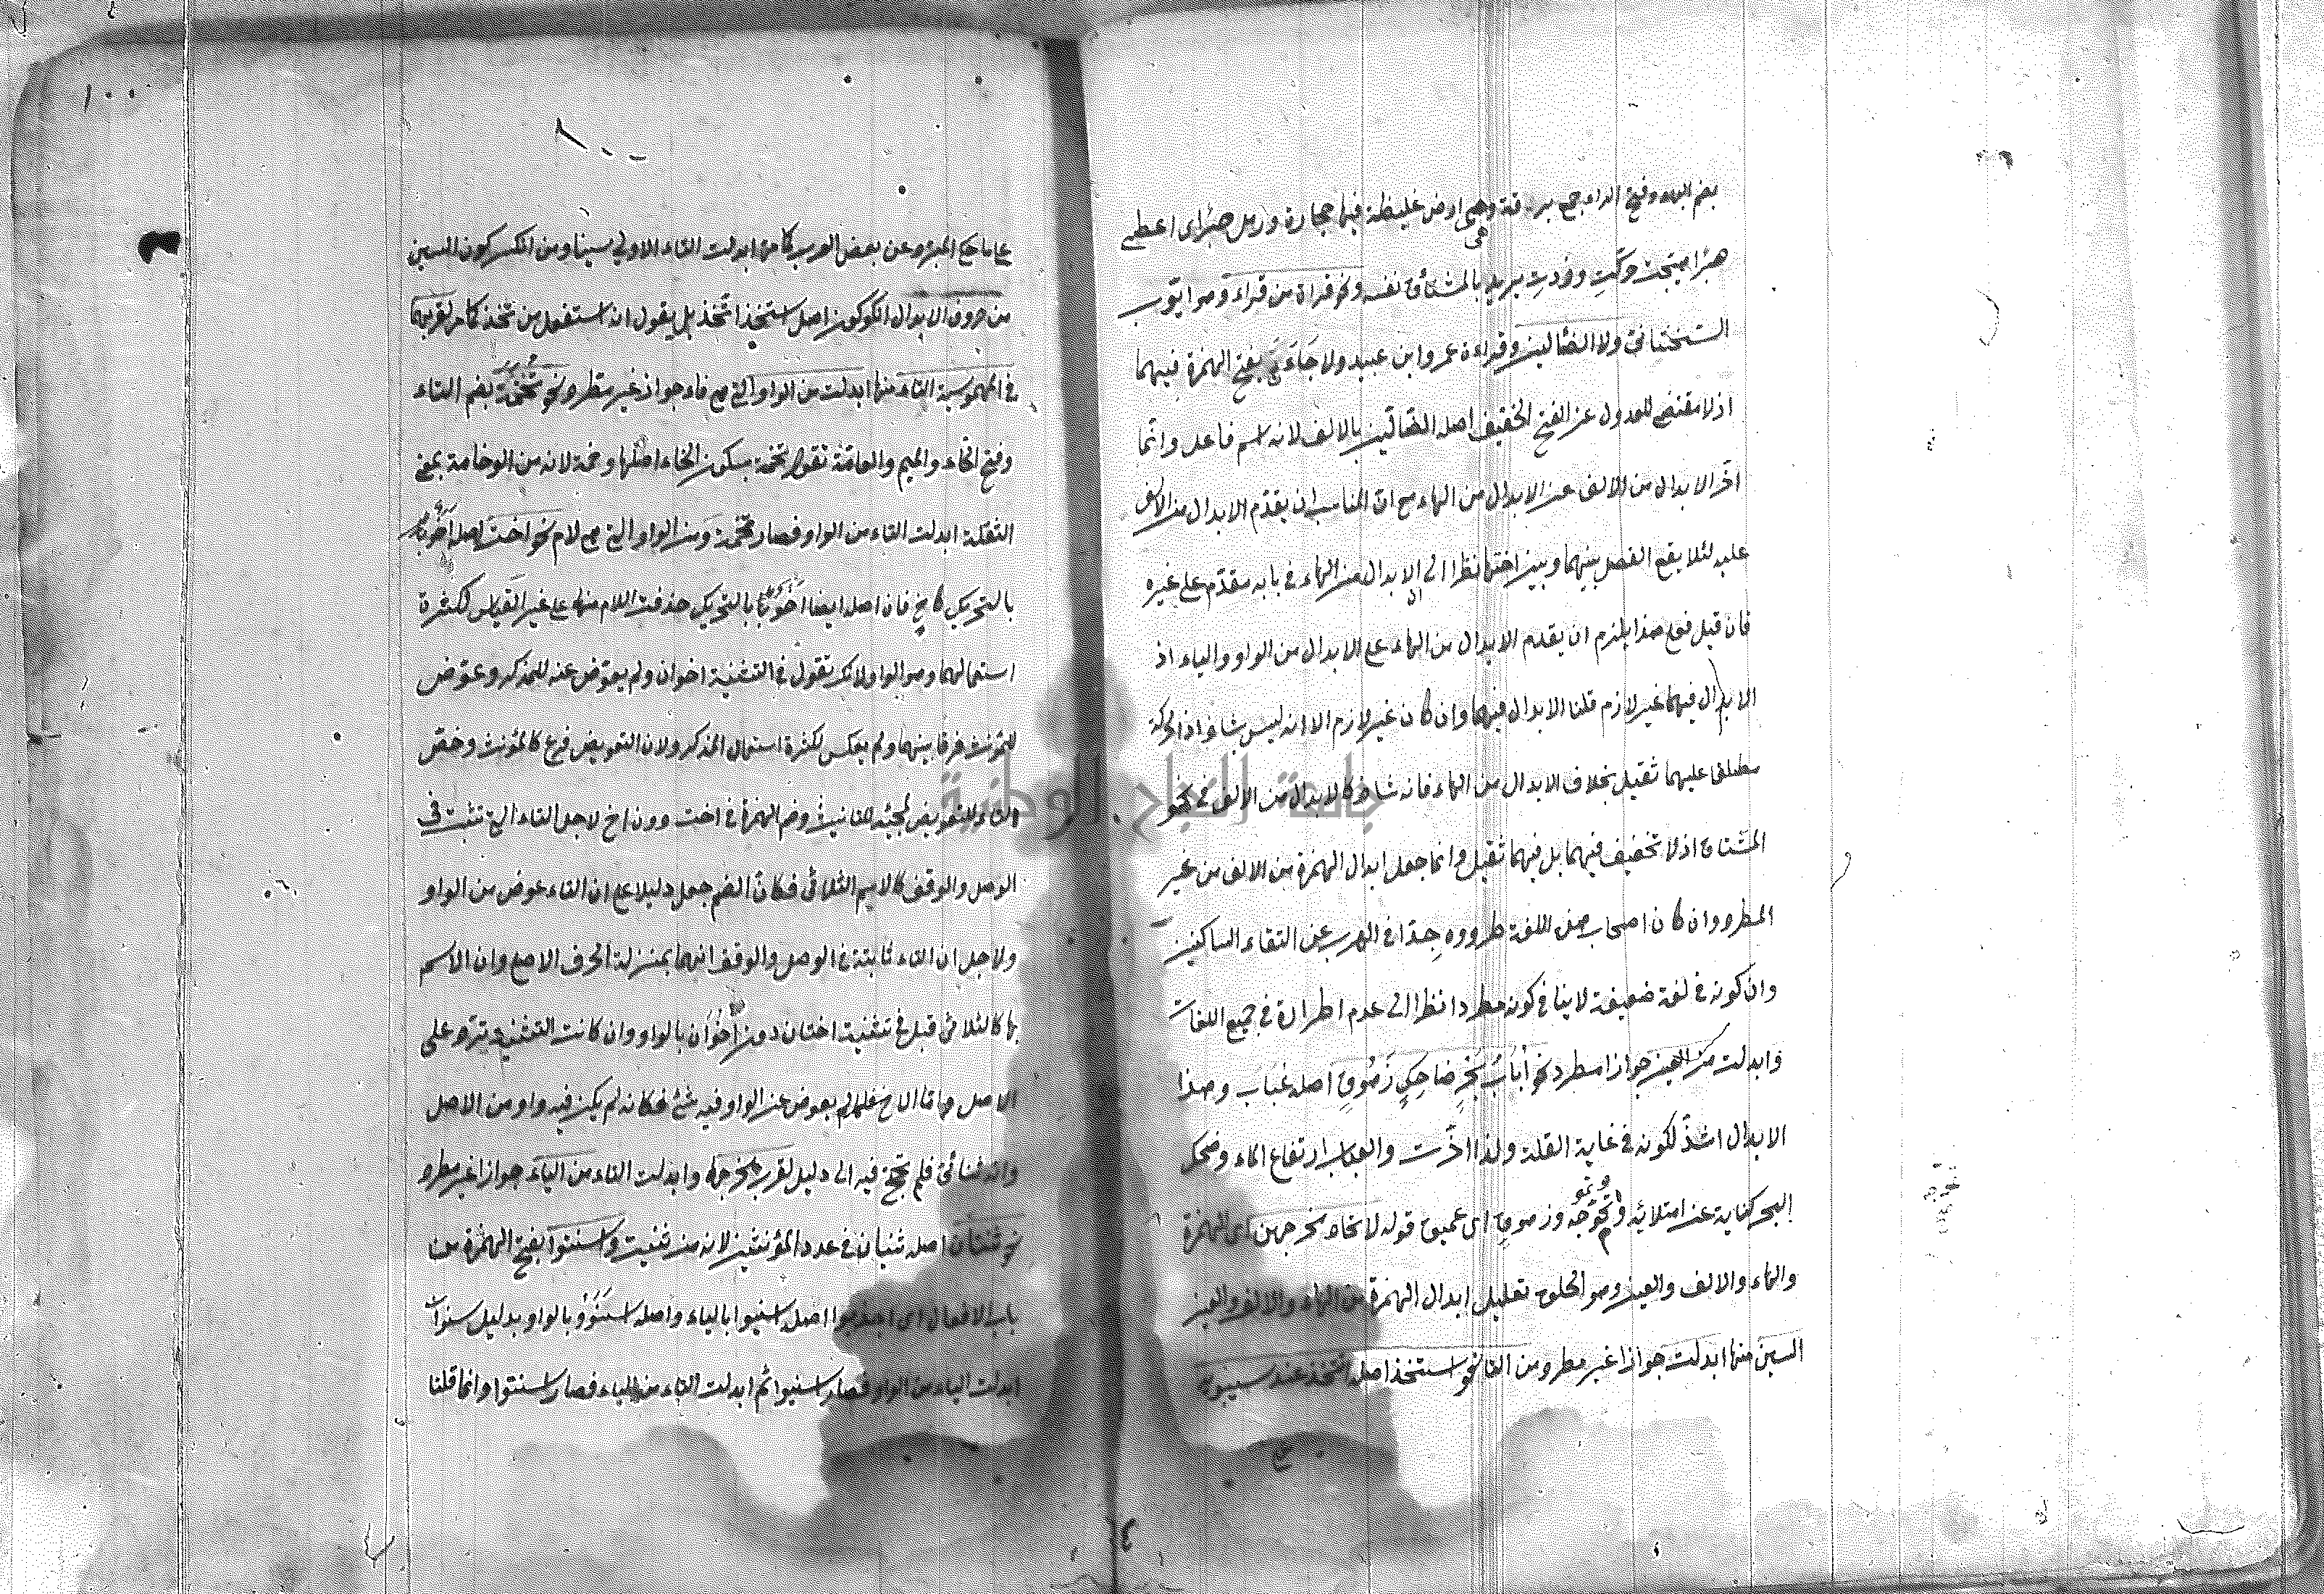 بضم الباء وفتح الراء جمع برقة وهي ارض غليظة فيها حجارة ورمل صبرا اى اعطى
صبرا هيجت وكت وفدت يريد بالمشتأق نفسه ونحو قراة من قراء وهو ايوب
السختيانى ولا الضألين وقراءة عمرو ابن عبيد ولا جأن بفتح الهمزة فيهما
اذ لا مقتضى للعدول عن الفتح الخفيف اصله الضالين بالالف لانه اسم فاعل وانما
اخر الابدال من الالف عن الابدال من الهاء مع ان المناسب ان يقدم الابدال من الالف
عليه لئلا يقع الفصل بينهما وبين اختها نظرا الى ان الابدال من الهاء فى بابه مقدم على غيره
فان قيل فعلى هذا يلزم ان يقدم الابدال من الهاء على الابدال من الواو والياء اذ
الابدال فيهما غير لازم قلنا الابدال فيهما وان كان غير لازم الا انه ليس بشاذ اذ الحركة
مطلقا عليهما ثقيل بخلاف الابدال من الهاء فانه شاذ كالابدال من الالف فى نحو
المشتاق اذ لا تخفيف فيهما بل فيهما ثقيل وانما جعل ابدال الهمزة من الالف من غير
المطرد وان كان اصحاب هذه اللغة طردوه جدا فى الهرب عن التقاء الساكنين
وان كونه فى لغة ضعيفة لا ينافى كونه مطردا نظرا الى عدم اطراده فى جميع اللغات
وابدلت من العين جوازا مطرد نحو أباب بحر ضاحك زهوق اصله عباب وهذا
الابدال اشذ لكونه فى غاية القلة ولذا اخرت والعباب ارتفاع الماء وضحك
البحر كناية عن امتلائه وتموجه وزهوق اى عميق قوله لاتحاد مخرجهن اى الهمزة
والهاء والالف والعين وهو الحلق تعليل ابدال الهمزة من الهاء والالف والعين
السين منها ابدلت جوازا غير مطرد من التا نحو استخذ اصله اتخذ عند سيبويه
١٠٠
على ما حكى المبرد عن بعض العرب كا مر ابدلت التاء الاولى سينا ومن انكر كون السين
من حروف الابدال انكر كون اصل استخذ اتخذ بل يقول انه استفعل من تخذ كما مر لقربهما
فى المهموسية التاء منها ابدلت من الواو التى هى فاء جواز غير مطرد نحو تخمة بضم التاء
وفتح الخاء والميم والعامة تقول تخمة بسكون الخاء اصلها وخمة لانه من الوخامة بمعنى
الثقلة ابدلت التاء من الواو فصار تخمة ومن الواو التى هى لام نحو اخت اصله اخوة
بالتحريك كاخ فان اصله ايضا اخو بالتحريك حذفت اللام منها على غير القياس لكثرة
استعمالهما وهو الواو لانك تقول فى التثنية اخوان ولم يعوض عنه للمذكر وعوض
للمؤنث فرقا بينهما ولم يعكس لكثرة استعمال المذكر ولان التعويض فرع كالمؤنث وخص
التاء للتعويض لمجيئه للتانيث وضم الهمزة فى اخت دون اخ لاجل التاء التى تثبت فى
الوصل والوقف كالاسم الثلاثى فكان الضم جعل دليلا على ان التاء عوض من الواو
ولاجل ان التاء ثابتة فى الوصل والوقف انهما بمنزلة الحرف الاصلى وان الاسم
بها كالثلاثى قيل فى تثنية اختان دون اخوان بالواو وان كانت التثنية ترد على
الاصل واما الاخ فلما لم يعوض عن الواو فيه شئ فكانه لم يكن فيه واو من الاصل
وانه ثنائى فلم تحتج فيه الى دليل لقرب مخرجها وابدلت التاء من الياء جوازا غير مطرد
نحو ثنتان اصله ثنيان فى عدد المؤنثين لانه من ثنيت واسنتوا بفتح الهمزة من
باب الافعال اى اجدبوا اصله اسنيوا بالياء واصله اسنووا بالواو بدليل سنوات
ابدلت الياء من الواو فصار اسنيوا ثم ابدلت التاء من الياء فصار اسنتوا وانما قلنا
جامعة النجاح الوطنية